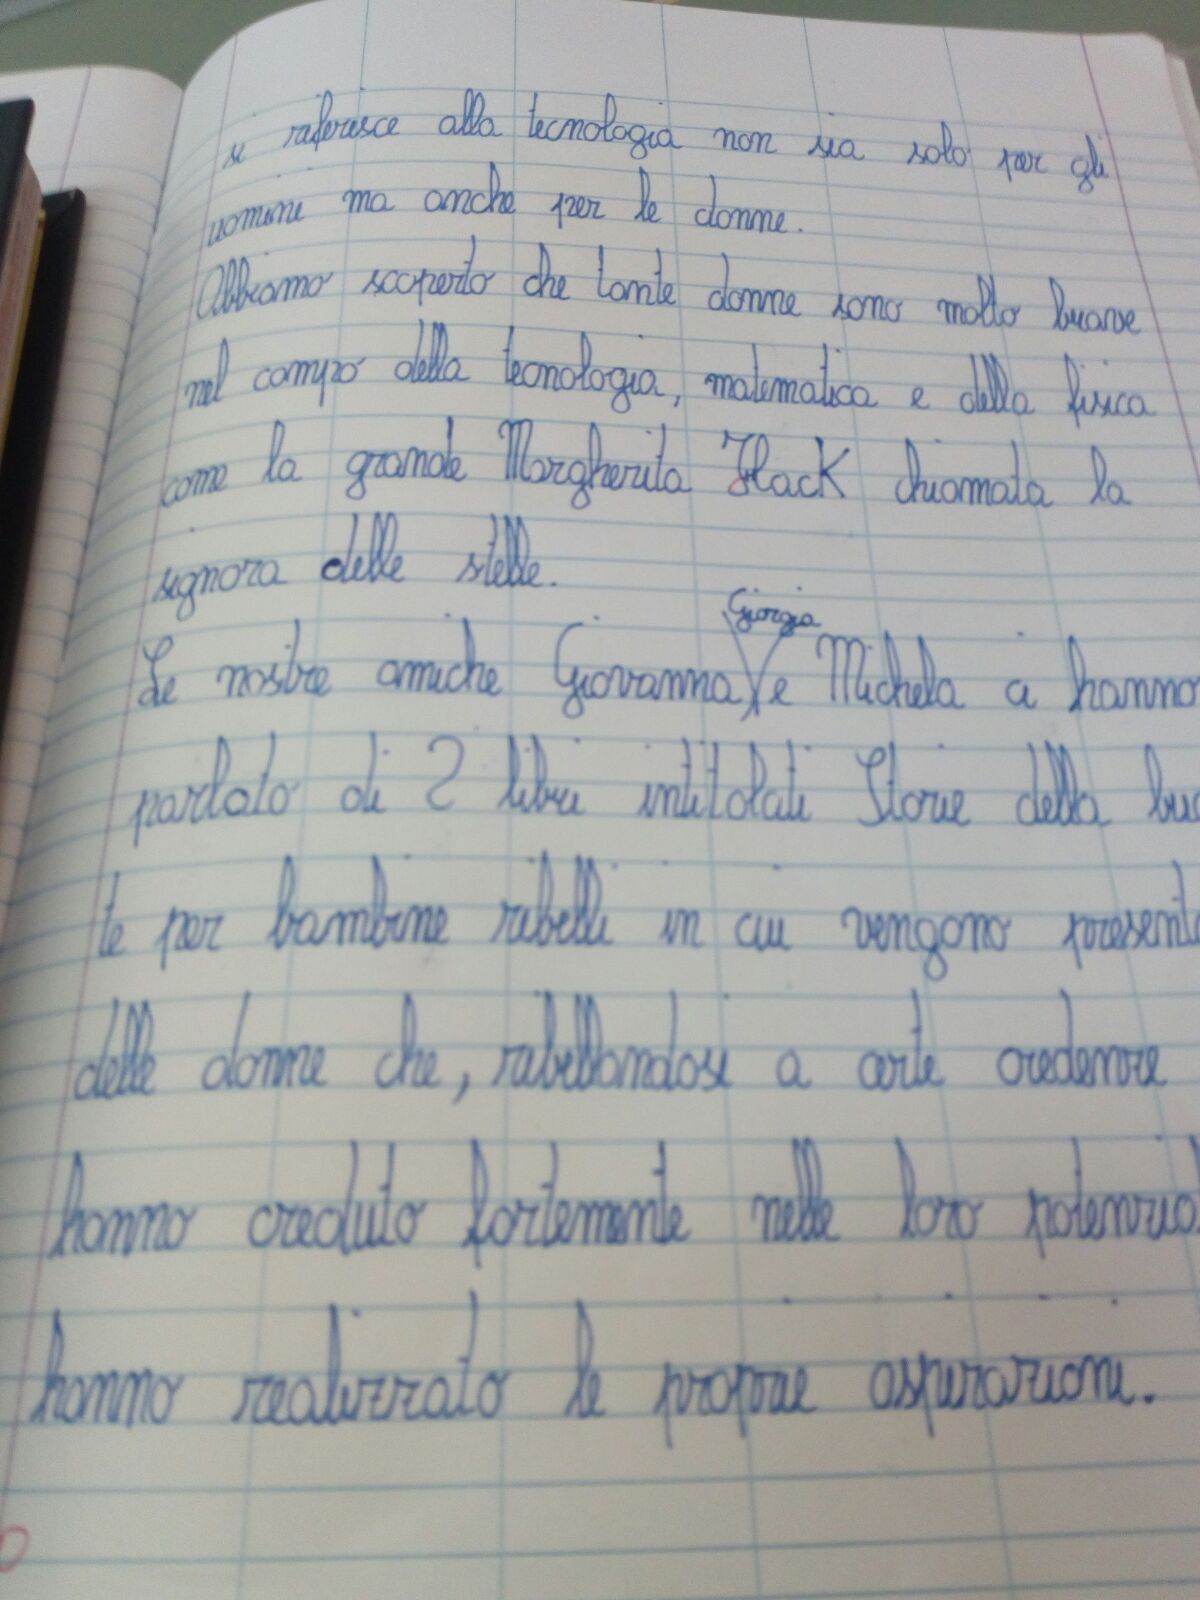 si riferisce alla tecnologia non sia solo per gli
uomini ma anche per le donne.
Abbiamo scoperto che tante donne sono molto brave
nel campo della tecnologia, matematica e della fisica
come la grande Margherita Hack chiamata la
signora delle stelle.
Giorgia
Le nostre amiche Giovanna e Michela ci hanno
parlato di 2 libri intitolati Storie della bu
te per bambine ribelli in cui vengono present
delle donne che, ribellandosi a certe credenze
hanno creduto fortemente nelle loro potenzial
hanno realizzato le proprie aspirazioni.